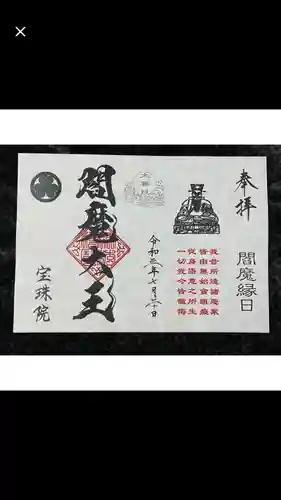 奉拝
閻魔縁日
我昔所造諸悪業
皆由無始貪瞋癡
従身語意之所生
一切我今皆懺悔
閻魔大王
宝珠院